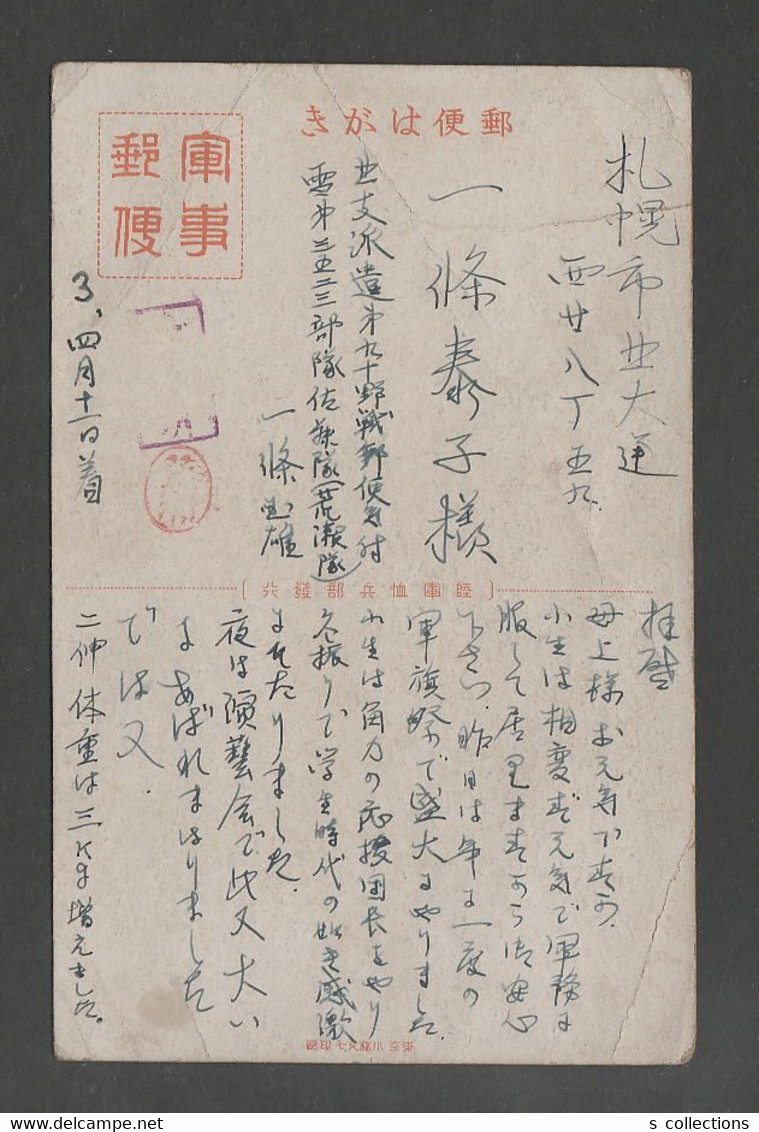 郵便はがき
軍事郵便
札幌市北大通
西廿八丁五九
一條泰子様
北支派遣第九十野戦郵便局気付
雲第三五二三部隊佐藤隊(荒瀬隊)
一條雄
3、四月十一日着
陸軍恤兵部發行
拝啓
母上様お元気ですか。
小生は相変ず元気で軍務に
服して居りますから御安心
下さい。昨日は年に一度の
軍旗祭で盛大にやりました。
小生は角力の応援団長をやり
久振りで学生時代の如き感激
にひたりました。
夜は演藝会で此又大い
にあばれまはりました
では又.
二伸体重は三K増えました。
東京 印刷
s collections